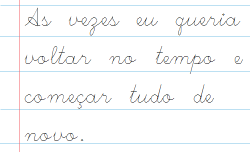 As vezes eu queria
voltar no tempo e
começar tudo de
novo.